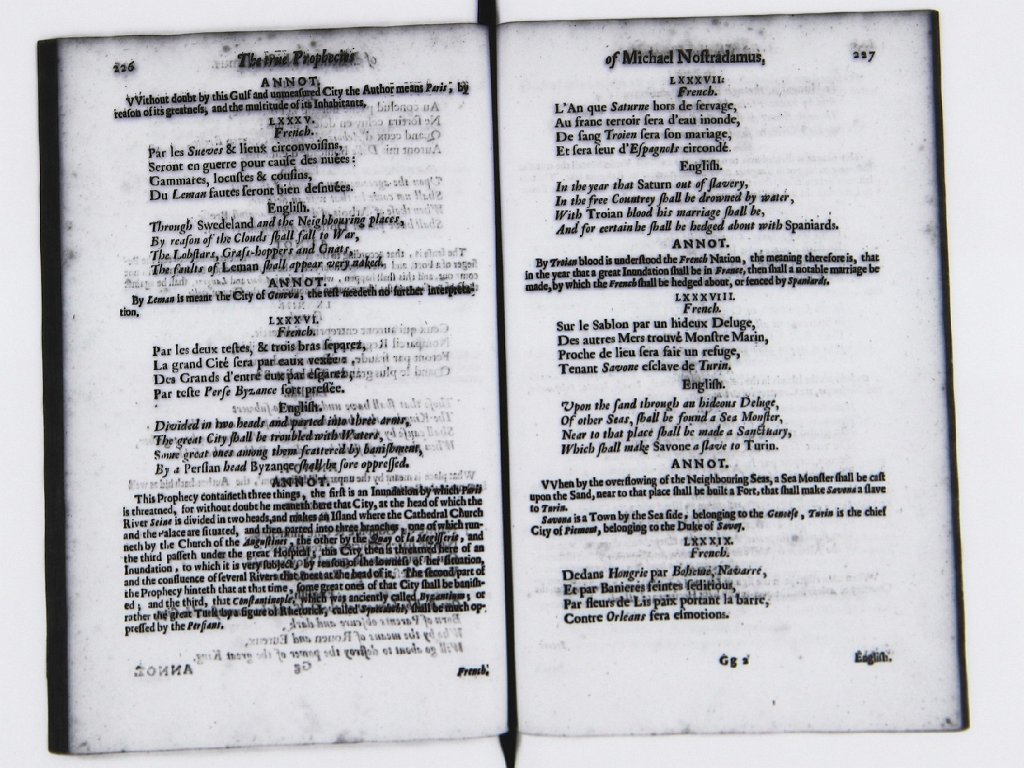 226
The true Prophecies
ANNOT.
VVithout doubt by this Gulf and unmeaſured City the Author means Paris, by
reaſon of its greatneſs, and the multitude of its Inhabitants.
LXXXV.
French.
Par les Sueves & lieux circonvoiſins,
Seront en guerre pour cauſe des nuées:
Gammares, locuſtes & couſins,
Du Leman fautes ſeront bien deſnuées.
Engliſh.
Through Swedeland and the Neighbouring places,
By reaſon of the Clouds ſhall fall to War,
The Lobſtars, Graſs-hoppers and Gnats,
The faults of Leman ſhall appear very naked.
ANNOT.
By Leman is meant the City of Geneva, the reſt needeth no further interpreta-
tion.
LXXXVI.
French.
Par les deux teſtes, & trois bras ſeparez,
La grand Cité ſera par eaux vexée,
Des Grands d'entre eux par eſgarez,
Par teſte Perſe Byzance fort preſſée.
Engliſh.
Divided in two heads and parted into three arms,
The great City ſhall be troubled with Waters,
Some great ones among them ſcattered by baniſhment,
By a Perſian head Byzance ſhall be ſore oppreſſed.
ANNOT.
This Prophecy containeth three things, the firſt is an Inundation by which Paris
is threatned, for without doubt he meaneth here that City, at the head of which the
River Seine is divided in two heads, and makes an Iſland where the Cathedral Church
and the Palace are ſituated, and then parted into three branches, one of which run-
neth by the Church of the Auguſtines, the other by the Quay of la Megiſſerie, and
the third paſſeth under the great Hoſpital; this City then is threatned here of an
Inundation, to which it is very ſubject, by reaſon of the lowneſs of her ſituation,
and the confluence of ſeveral Rivers that meet at the head of it. The ſecond part of
the Prophecy hinteth that at that time, ſome great ones of that City ſhall be baniſh-
ed; and the third, that Conſtantinople, which was anciently called Byzantium; or
rather the great Turk by a figure of Rhetorick, called Synecdoche, ſhall be much op-
preſſed by the Perſians.
French.
of Michael Noſtradamus,
227
LXXXVII.
French.
L'An que Saturne hors de ſervage,
Au franc terroir ſera d'eau inonde,
De ſang Troien ſera ſon mariage,
Et ſera ſeur d'Eſpagnols circondé.
Engliſh.
In the year that Saturn out of ſlavery,
In the free Countrey ſhall be drowned by water,
With Troian blood his marriage ſhall be,
And for certain he ſhall be hedged about with Spaniards.
ANNOT.
By Troian blood is underſtood the French Nation, the meaning therefore is, that
in the year that a great Inundation ſhall be in France, then ſhall a notable marriage be
made, by which the French ſhall be hedged about, or fenced by Spaniards.
LXXXVIII.
French.
Sur le Sablon par un hideux Deluge,
Des autres Mers trouvé Monſtre Marin,
Proche de lieu ſera fait un refuge,
Tenant Savone eſclave de Turin.
Engliſh.
Upon the ſand through an hideous Deluge,
Of other Seas, ſhall be found a Sea Monſter,
Near to that place ſhall be made a Sanctuary,
Which ſhall make Savone a ſlave to Turin.
ANNOT.
VVhen by the overflowing of the Neighbouring Seas, a Sea Monſter ſhall be caſt
upon the Sand, near to that place ſhall be built a Fort, that ſhall make Savona a ſlave
to Turin.
Savona is a Town by the Sea ſide, belonging to the Genoeſe, Turin is the chief
City of Piemont, belonging to the Duke of Savoy.
LXXXIX.
French.
Dedans Hongrie par Boheme, Navarre,
Et par Banieres feintes ſeditious,
Par fleurs de Lis païx portant la barre,
Contre Orleans fera eſmotions.
Gg 2
Engliſh.